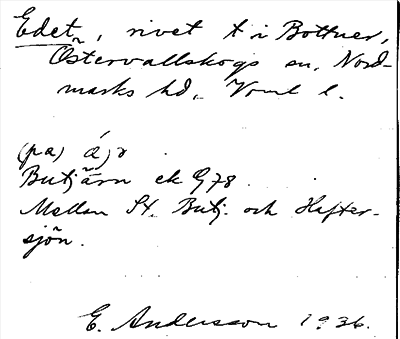 Edet, rivet t i Bottner,
Östervallskogs sn, Nord-
marks hd, Vrml l.
(pa)
Butjärn ek G78
Mellan St. Butj. och Hafter-
sjön.
E. Andersson 1936.